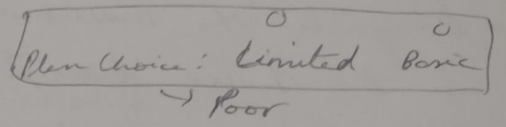 Plan Choice: Limited Basic
→ Poor